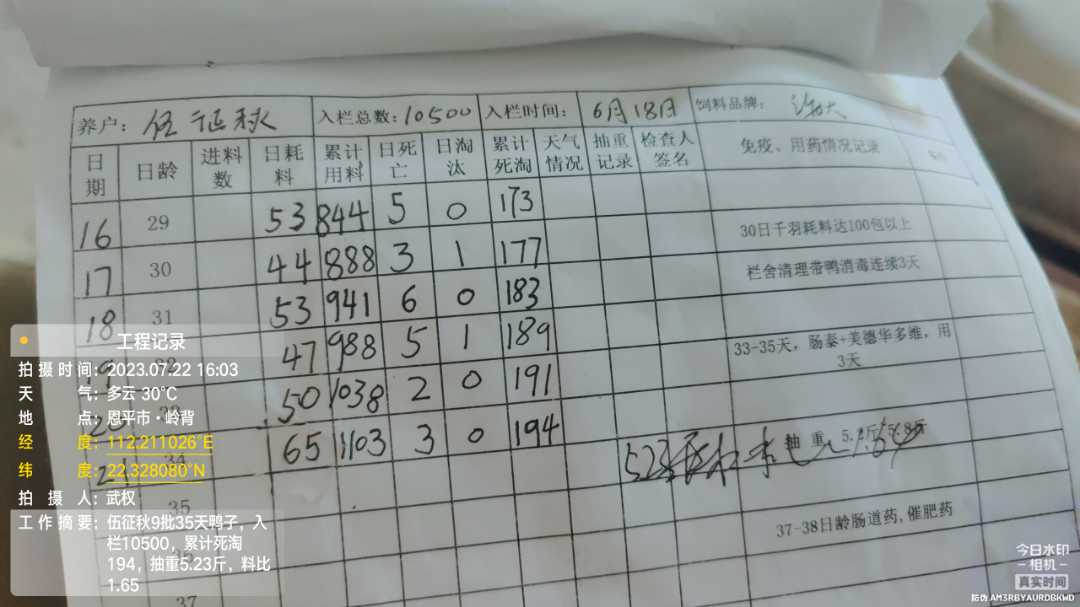 养户：伍证秋 入栏总数：10500 入栏时间：6月18日 饲料品牌：
日期 日龄 进料数 日耗料 累计用料 日死亡 日淘汰 累计死淘 天气情况 抽重记录 检查人签名 免疫、用药情况记录
16 29 53 844 5 0 173
17 30 44 888 3 1 177 30日千羽耗料达100包以上
18 31 53 941 6 0 183 栏舍清理带鸭消毒连续3天
19 47 988 5 1 189 33-35天，肠泰+美德华多维，用3天
20 50 1038 2 0 191
21 34 65 1103 3 0 194 523 抽重
35
37-38日龄肠道药,催肥药
37
工程记录
拍摄时间：2023.07.22 16:03
天气：多云 30℃
地点：恩平市·岭背
经度：112.211026°E
纬度：22.328080°N
拍摄人：武权
工作摘要：伍征秋9批35天鸭子，入
栏10500，累计死淘
194，抽重5.23斤，料比
1.65
今日水印
相机
真实时间
防伪 AM3RBYAURDBKWD